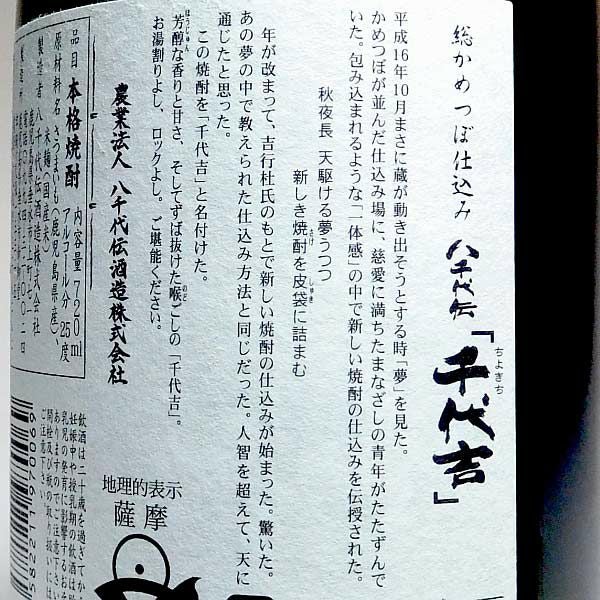 総かめつぼ仕込み 八千代伝「千代吉」
ちよきち
平成16年10月まさに蔵が動き出そうとする時「夢」を見た。
かめつぼが並んだ仕込み場に、慈愛に満ちたまなざしの青年がたたずんで
いた。包み込まれるような「一体感」の中で新しい焼酎の仕込みを伝授された。
秋夜長 天駆ける夢うつつ
新しき焼酎を皮袋に詰まむ
さけ
しゅき
年が改まって、吉行杜氏のもとで新しい焼酎の仕込みが始まった。驚いた。
あの夢の中で教えられた仕込み方法と同じだった。人智を超えて、天に
通じたと思った。
この焼酎を「千代吉」と名付けた。
芳醇な香りと甘さ、そしてずば抜けた喉ごしの「千代吉」。
ほうじゅん
のど
お湯割りよし、ロックよし。ご堪能ください。
農業法人 八千代伝酒造株式会社
品目 本格焼酎 内容量 720ml
アルコール分 25度
原材料名 さつまいも(鹿児島県産)、
米麹(国産米)
製造者 八千代伝酒造株式会社
地理的表示
薩摩
飲酒は二十歳を過ぎてか
妊娠中や授乳期の飲酒は
乳児の発育に影響するお
ありますのでご注意下さい
開栓及び瓶の取り扱いには
ご注意下さい